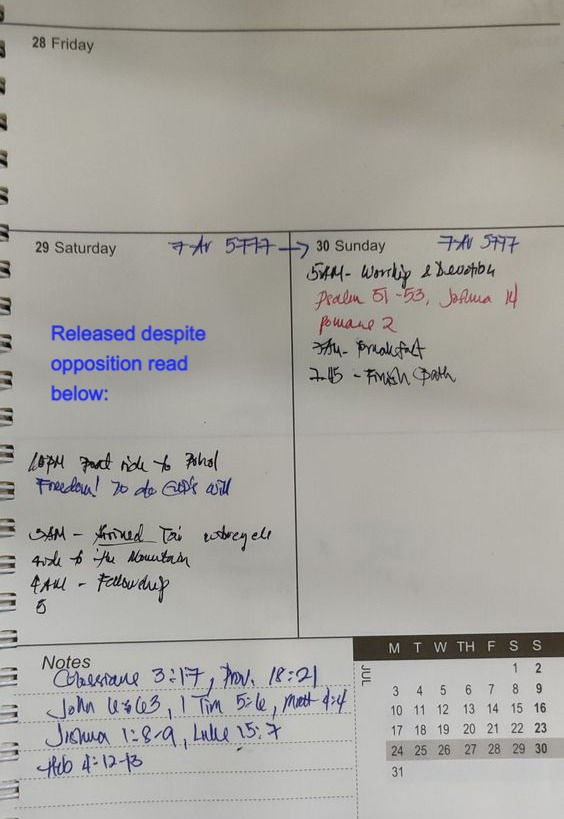 28 Friday
29 Saturday 7-Av 5777 →
Released despite
opposition read
below:
10PM Boat ride to Bohol
Freedom! To do GOD's will
3AM - Arrived
ride to the Mountain
4AM - Fellowship
5
30 Sunday 7-AV 5777
5AM- Worship & Devotion
Psalm 51-53, Joshua 14
Romans 2
7AM- Breakfast
7:45 - Finish Path
Notes
Colossians 3:17, Prov. 18:21
John 6:63, 1 Tim 5:6, Matt 4:4
Joshua 1:8-9, Luke 15:7
Heb 4:12-13
JUL
M T W TH F S S
1 2
3 4 5 6 7 8 9
10 11 12 13 14 15 16
17 18 19 20 21 22 23
24 25 26 27 28 29 30
31